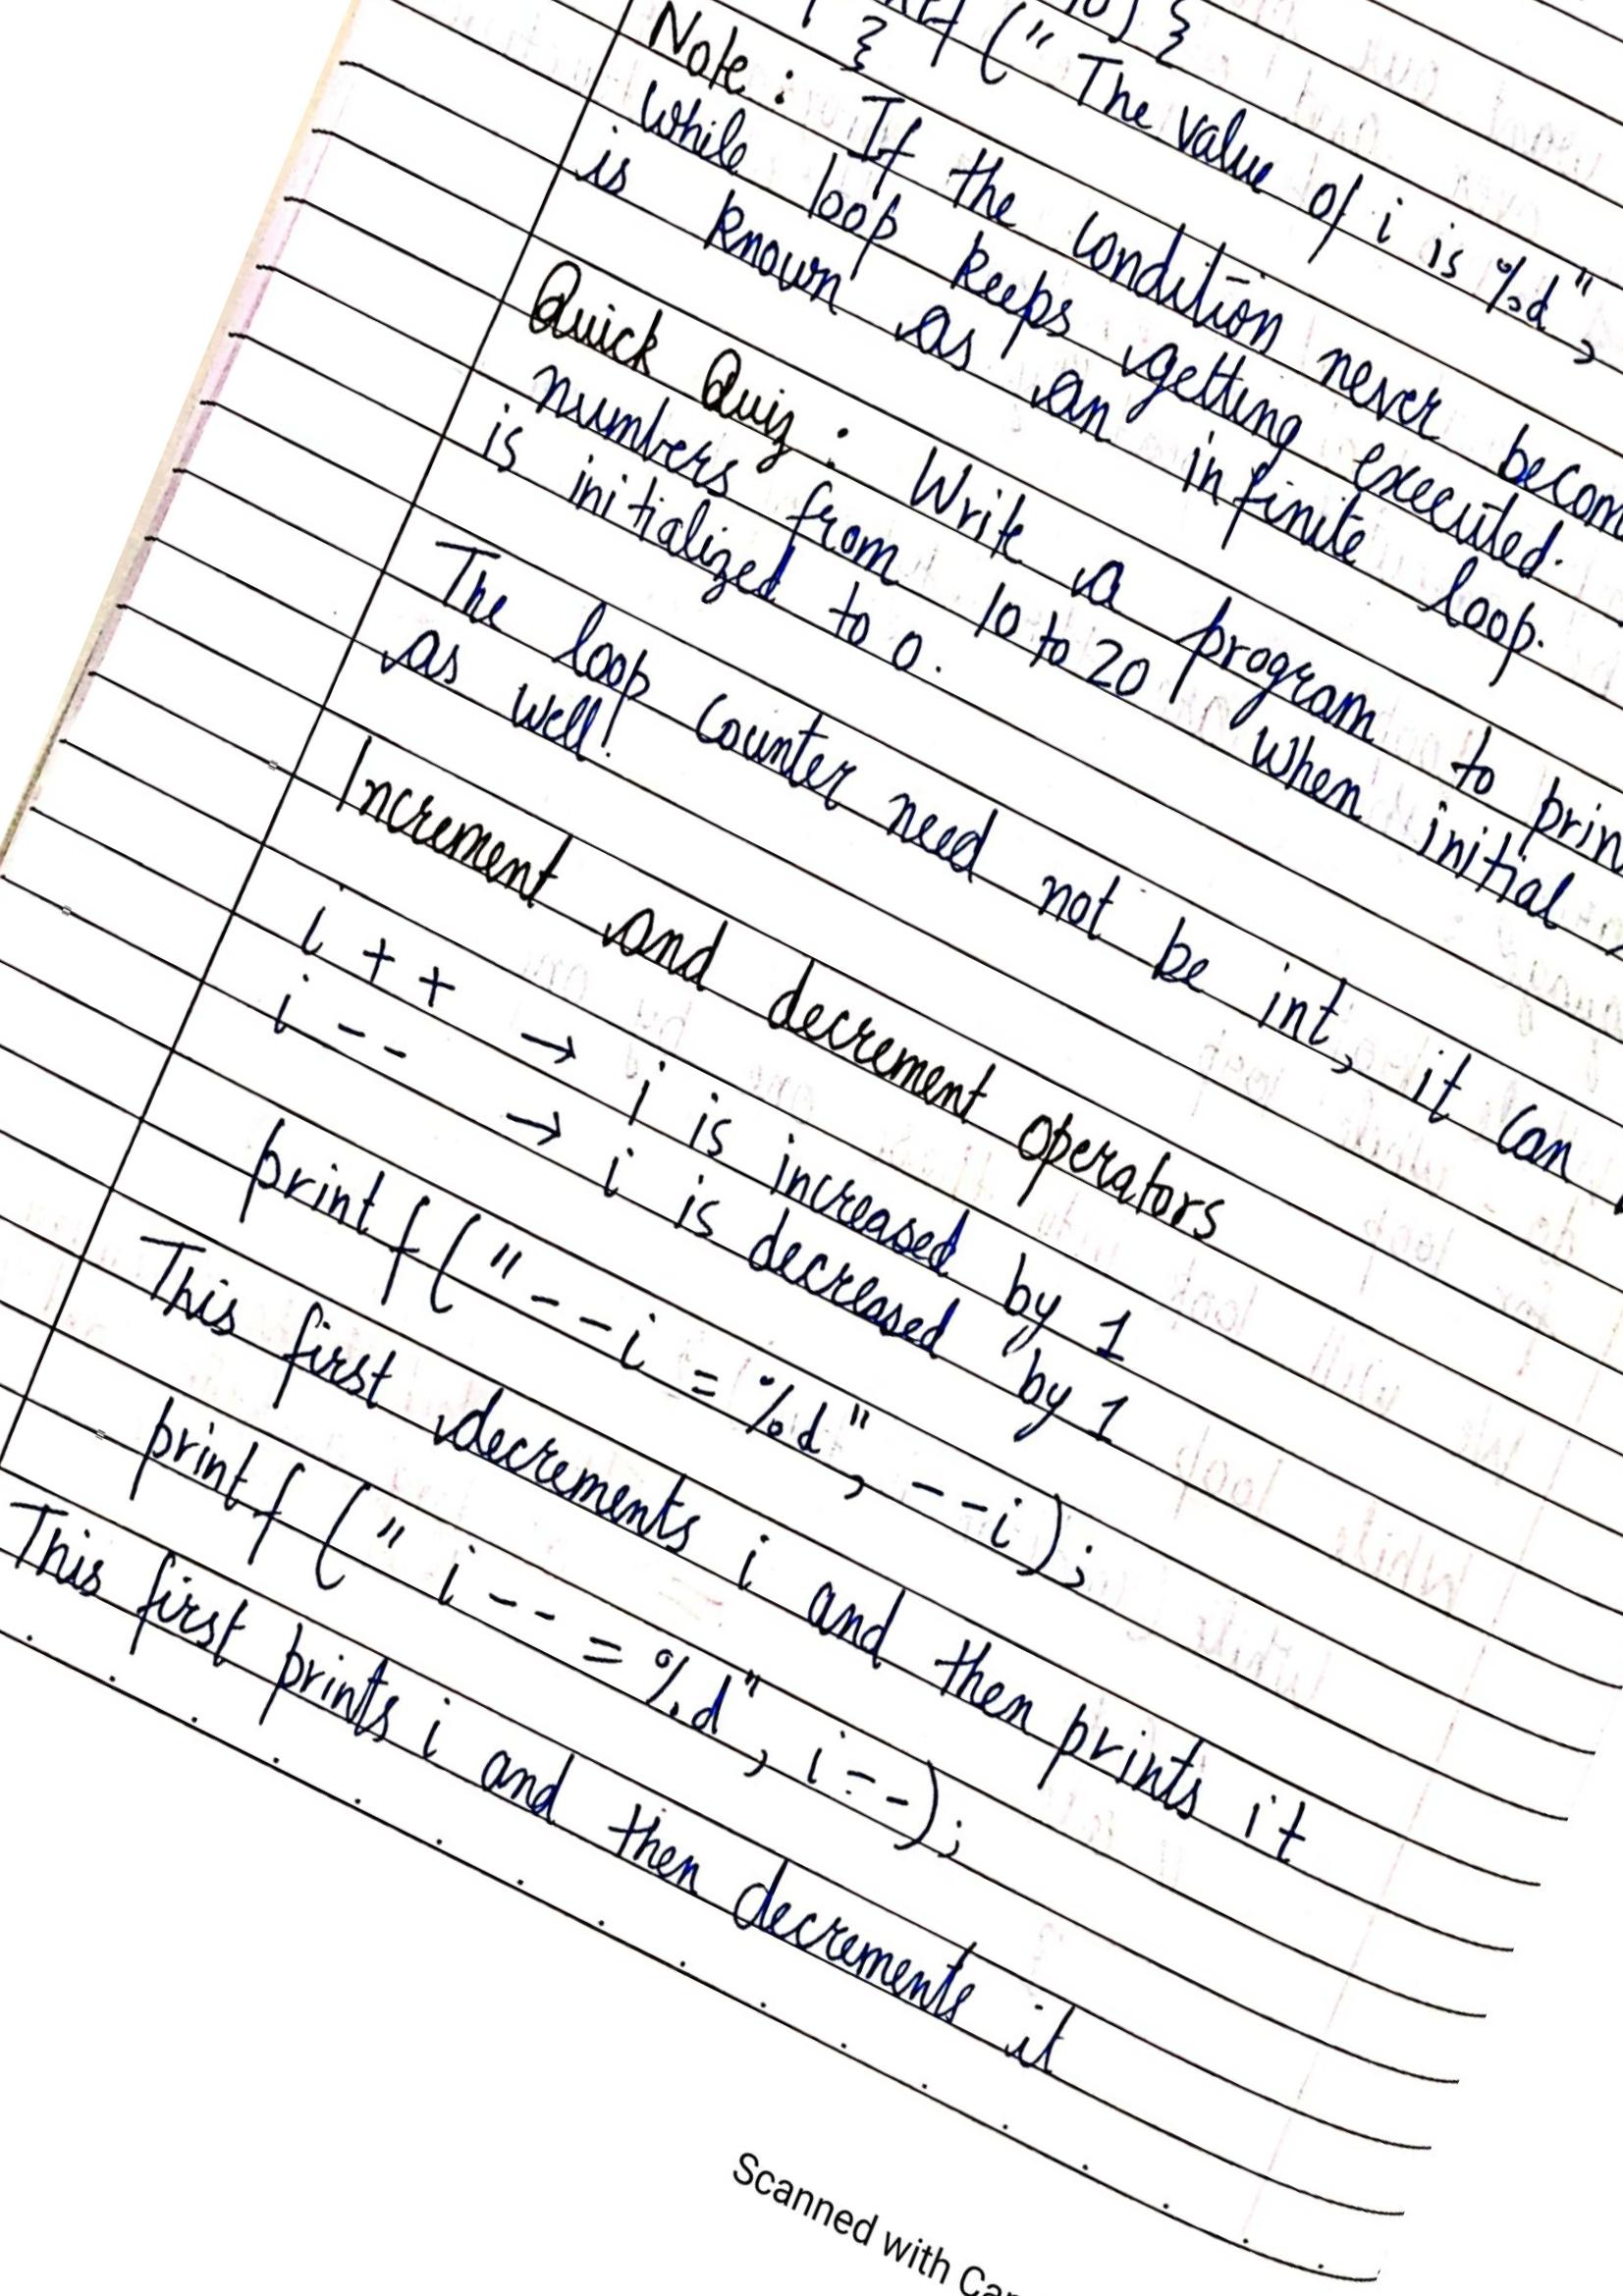 ("The value of i is %d",
}
Note : If the condition never
while loop keeps getting executed.
is known as an infinite loop.
Quick Quiz : Write a program to
numbers from 10 to 20 when initial
is initialized to 0.
The loop counter need not be int, it can
as well!
Increment and decrement operators
i++ → i is increased by 1
i-- → i is decreased by 1
printf("--i = %d", --i);
This first decrements i and then prints it
printf("i-- = %d", i--);
This first prints i and then decrements it
Scanned with